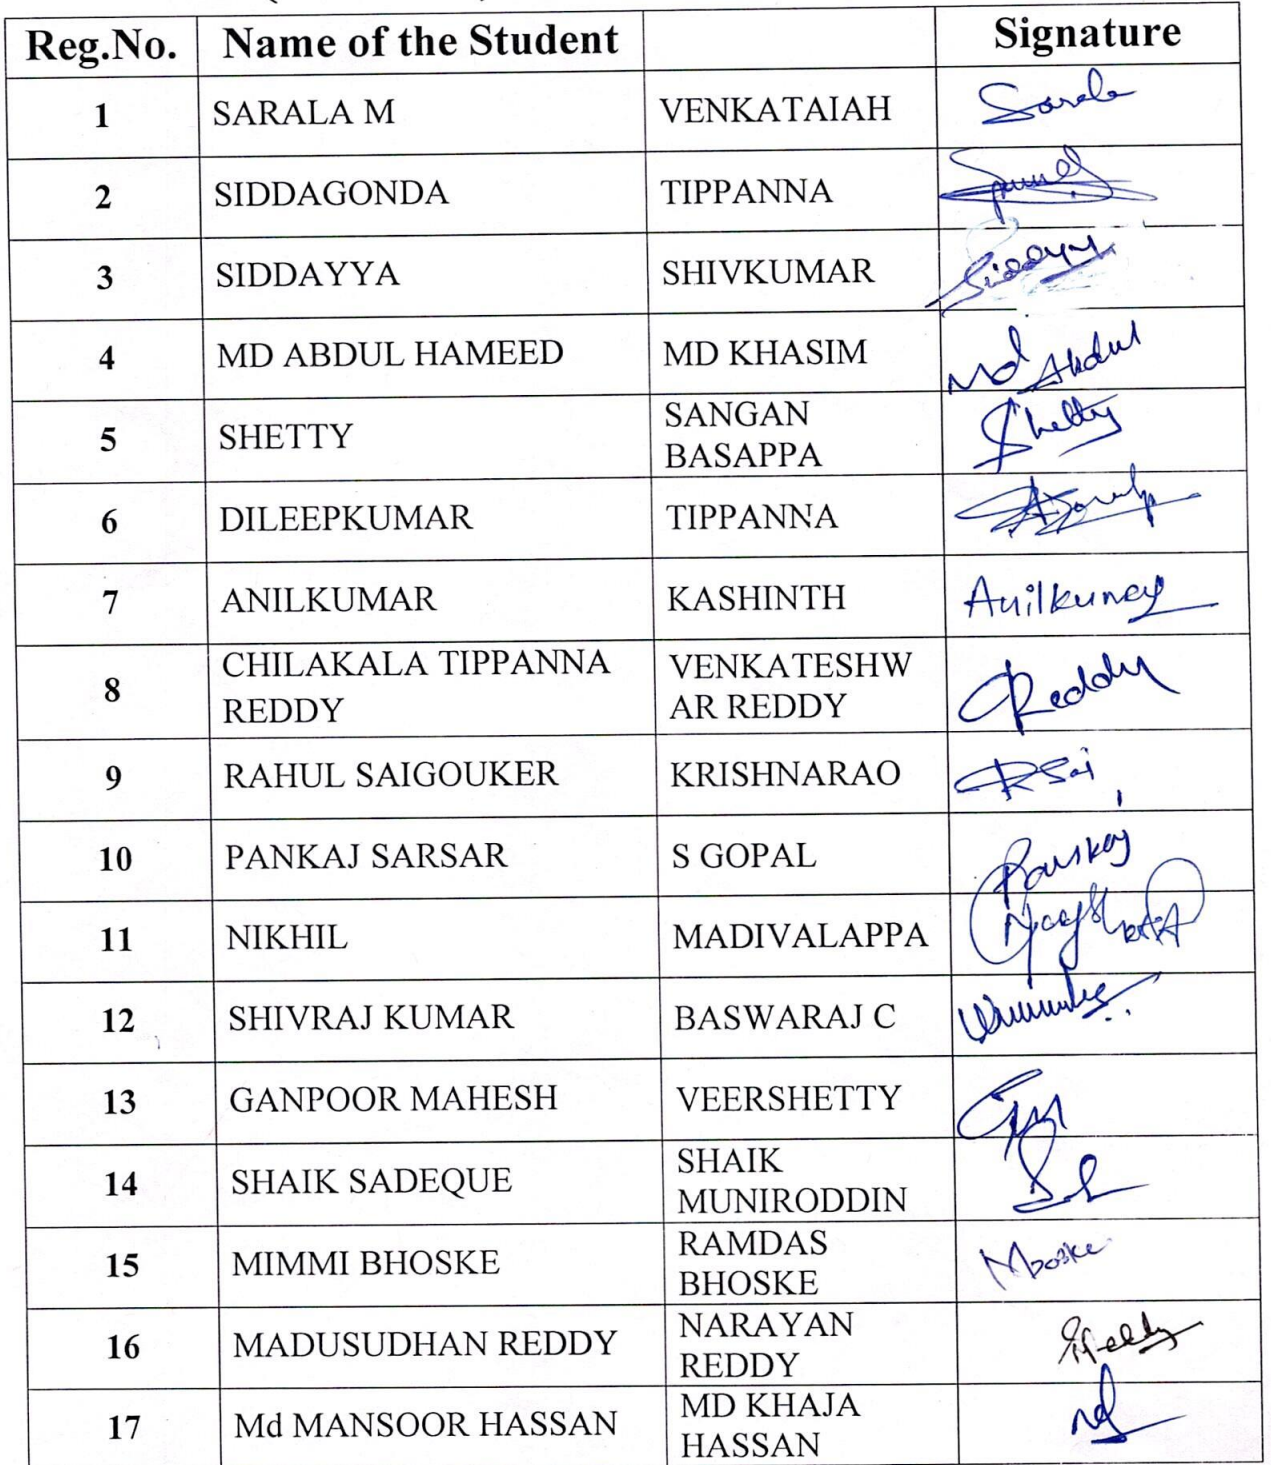 Reg.No. Name of the Student Signature
1 SARALA M VENKATAIAH Sarala
2 SIDDAGONDA TIPPANNA
3 SIDDAYYA SHIVKUMAR Siddayya
4 MD ABDUL HAMEED MD KHASIM Md Abdul
5 SHETTY SANGAN
BASAPPA Shetty
6 DILEEPKUMAR TIPPANNA
7 ANILKUMAR KASHINTH Anilkumar
8 CHILAKALA TIPPANNA
REDDY VENKATESHW
AR REDDY Reddy
9 RAHUL SAIGOUKER KRISHNARAO RSai
10 PANKAJ SARSAR S GOPAL Pankaj
11 NIKHIL MADIVALAPPA
12 SHIVRAJ KUMAR BASWARAJ C
13 GANPOOR MAHESH VEERSHETTY
14 SHAIK SADEQUE SHAIK
MUNIRODDIN
15 MIMMI BHOSKE RAMDAS
BHOSKE
16 MADUSUDHAN REDDY NARAYAN
REDDY Reddy
17 Md MANSOOR HASSAN MD KHAJA
HASSAN Md